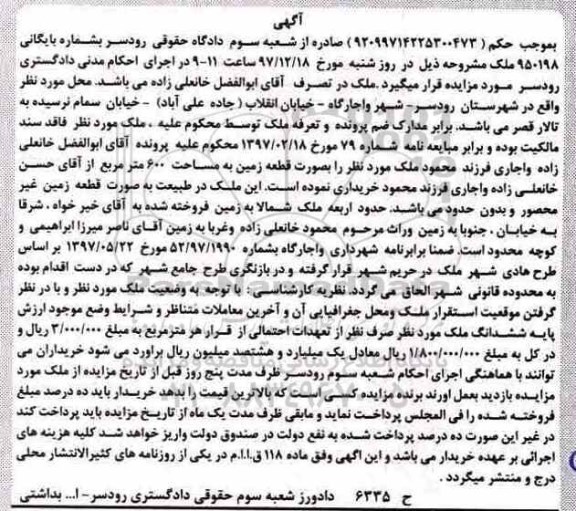 آگهی
بموجب حکم ( ۹۲۰۹۹۷۱۴۲۲۵۳۰۰۴۷۳) صادره از شعبه سوم دادگاه حقوقی رودسر بشماره بایگانی
۹۵۰۱۹۸ ملک مشروحه ذیل در روز شنبه مورخ ۹۷/۱۲/۱۸ ساعت ۱۱-۹ در اجرای احکام مدنی دادگستری
رودسر مورد مزایده قرار میگیرد .ملک در تصرف آقای ابوالفضل خانعلی زاده می باشد. محل مورد نظر
واقع در شهرستان رودسر- شهر واجارگاه - خیابان انقلاب ( جاده علی آباد) - خیابان سمام نرسیده به
تالار قصر می باشد. برابر مدارک ضم پرونده و تعرفه ملک توسط محکوم علیه ، ملک مورد نظر فاقد سند
مالکیت بوده و برابر مبایعه نامه شماره ۷۹ مورخ ۱۳۹۷/۰۲/۱۸ محکوم علیه پرونده آقای ابوالفضل خانعلی
زاده واجاری فرزند محمود ملک مورد نظر را بصورت قطعه زمین به مساحت ۶۰۰ متر مربع از آقای حسن
خانعلی زاده واجاری فرزند محمود خریداری نموده است. این ملک در طبیعت به صورت قطعه زمین غیر
محصور و بدون حدود می باشد. حدود اربعه ملک شمالا به زمین فروخته شده به آقای خیر خواه ، شرقا
به خیابان ، جنوبا به زمین وراث مرحوم محمود خانعلی زاده وغربا به زمین آقای ناصر میرزا ابراهیمی و
کوچه محدود است. ضمنا برابرنامه شهرداری واجارگاه بشماره ۵۲/۹۷/۱۹۹۰ مورخ ۱۳۹۷/۰۵/۲۲ بر اساس
طرح هادی شهر ملک در حریم شهر قرار گرفته و در بازنگری طرح جامع شهر که در دست اقدام بوده
به محدوده قانونی شهر الحاق می گردد. نظریه کارشناسی : با توجه به وضعیت ملک مورد نظر و با در نظر
گرفتن موقعیت استقرار ملک ومحل جغرافیایی آن و آخرین معاملات متناظر و شرایط وضع موجود ارزش
پایه ششدانگ ملک مورد نظر صرف نظر از تعهدات احتمالی از قرار هر مترمربع به مبلغ ۳/۰۰۰/۰۰۰ ریال و
در کل به مبلغ ۱/۸۰۰/۰۰۰/۰۰۰ ریال معادل یک میلیارد و هشتصد میلیون ریال براورد می شود خریداران می
توانند با هماهنگی اجرای احکام شعبه سوم رودسر ظرف مدت پنج روز قبل از تاریخ مزایده از ملک مورد
مزایده بازدید بعمل اورند برنده مزایده کسی است که بالاترین قیمت را بدهد خریدار باید ده درصد مبلغ
فروخته شده را فی المجلس پرداخت نماید و مابقی ظرف مدت یک ماه از تاریخ مزایده باید پرداخت کند
در غیر این صورت ده درصد پرداخت شده به نفع دولت در صندوق دولت واریز خواهد شد کلیه هزینه های
اجرائی بر عهده خریدار می باشد و این اگهی وفق ماده ۱۱۸ ق.ا.ا.م در یکی از روزنامه های کثیرالانتشار محلی
درج و منتشر میگردد .
ح ۶۳۳۵ دادورز شعبه سوم حقوقی دادگستری رودسر- ا... بداشتی